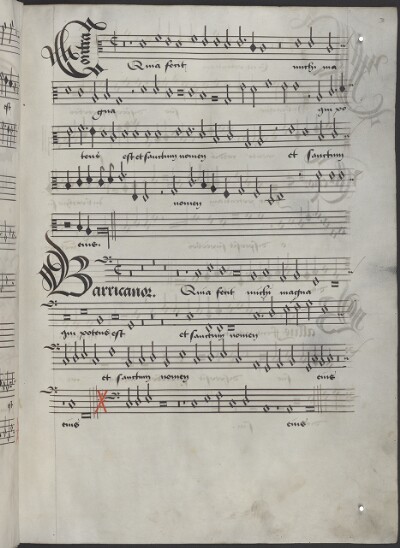 Contra
Quia fecit michi ma
gna qui po
tens est et sanctum nomen et sanctum
nomen
eius
Barricanor. Quia fecit michi magna
qui potens est et sanctum nomen
et sanctum nomen eius
eius eius